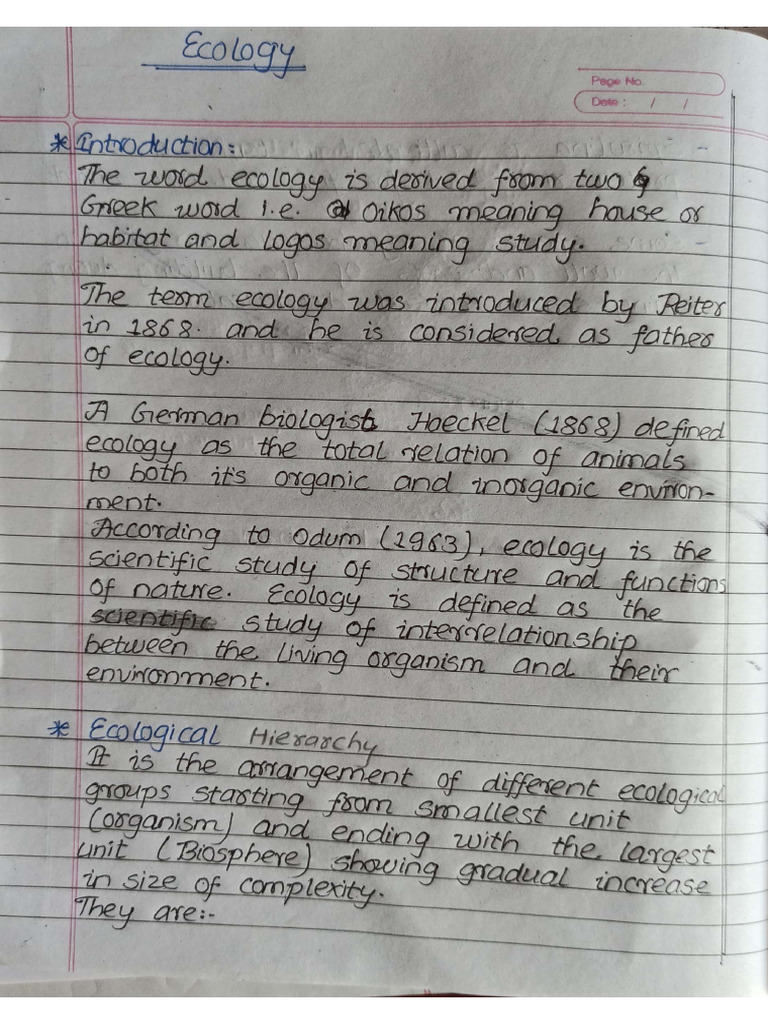 Ecology
Page No.
Date : / /
* Introduction:
The word ecology is derived from two
Greek word i.e. Oikos meaning house or
habitat and logos meaning study.
The term ecology was introduced by Reiter
in 1868. and he is considered as father
of ecology.
A German biologist Haeckel (1868) defined
ecology as the total relation of animals
to both it's organic and inorganic environ-
ment.
According to Odum (1963), ecology is the
scientific study of structure and functions
of nature. Ecology is defined as the
scientific study of interrelationship
between the living organism and their
environment.
* Ecological Hierarchy
It is the arrangement of different ecological
groups starting from smallest unit
(organism) and ending with the largest
unit (Biosphere) showing gradual increase
in size of complexity.
They are:-